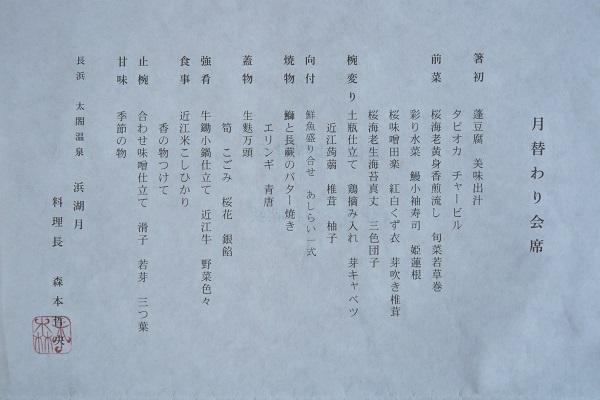 月替わり会席
箸初　蓬豆腐　美味出汁
タピオカ　チャービル
前菜　桜海老黄身香煎流し　旬菜若草巻
彩り水菜　鰻小袖寿司　姫蓮根
桜味噌田楽　紅白くず衣　芽吹き椎茸
桜海老生海苔真丈　三色団子
椀変り　土瓶仕立て　鶏摘み入れ　芽キャベツ
近江蒟蒻　椎茸　柚子
向付　鮮魚盛り合せ　あしらい一式
焼物　鰤と長蕨のバター焼き
エリンギ　青唐
蓋物　生麩万頭
筍　こごみ　桜花　銀餡
強肴　牛鋤小鍋仕立て　近江牛　野菜色々
食事　近江米こしひかり
香の物つけて
止椀　合わせ味噌仕立て　滑子　若芽　三つ葉
甘味　季節の物
長浜　太閤温泉　浜湖月
料理長　森本哲